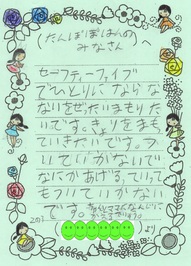 (たんぽぽはんの
みなさんへ
セーフティーファイブ
でひとりにならな
いをぜったいまもりた
いです。きょりをまもっ
ていきたいです。つ
いていかないで
なにかあげる。ていっても
ついていかない
です。
2の1
より